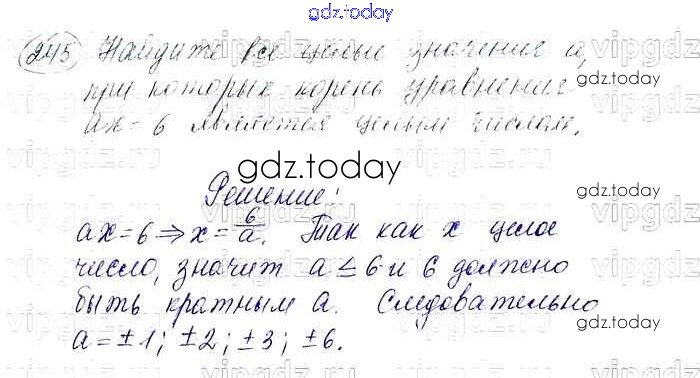 gdz.today
245 Найдите все целые значения a,
vipgdz
gdz.today
при которых корень уравнения
ax = 6 является целым числом.
gdz.today
vipgdz
Решение:
ax = 6 ⇒ x = 6/a. Так как x целое
число, значит a ≤ 6 и 6 должно
gdz.today
быть кратным a. Следовательно
gdz.today
a = ±1; ±2; ±3; ±6.
vipgdz